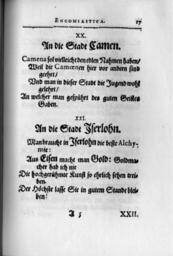 ENCOMIASTICA. 17
XX.
An die Stadt Camen.
Camena sol vielleicht den edlen Nahmen haben/
Weil die Camœnen hier vor andern sind
geehrt/
Und man in dieser Stadt die Jugend wohl
gelehrt/
An welcher man gespührt des guten Geistes
Gaben.
XXI.
An die Stadt Jserlohn.
Man braucht in Jserlohn die beste Alchy-
mie:
Aus Eisen macht man Gold: Goldma-
cher hab ich nie
Die hochgerühmte Kunst so ehrlich sehen trei-
ben.
Der Höchste lasse Sie in gutem Stande blei-
ben!
XXII.